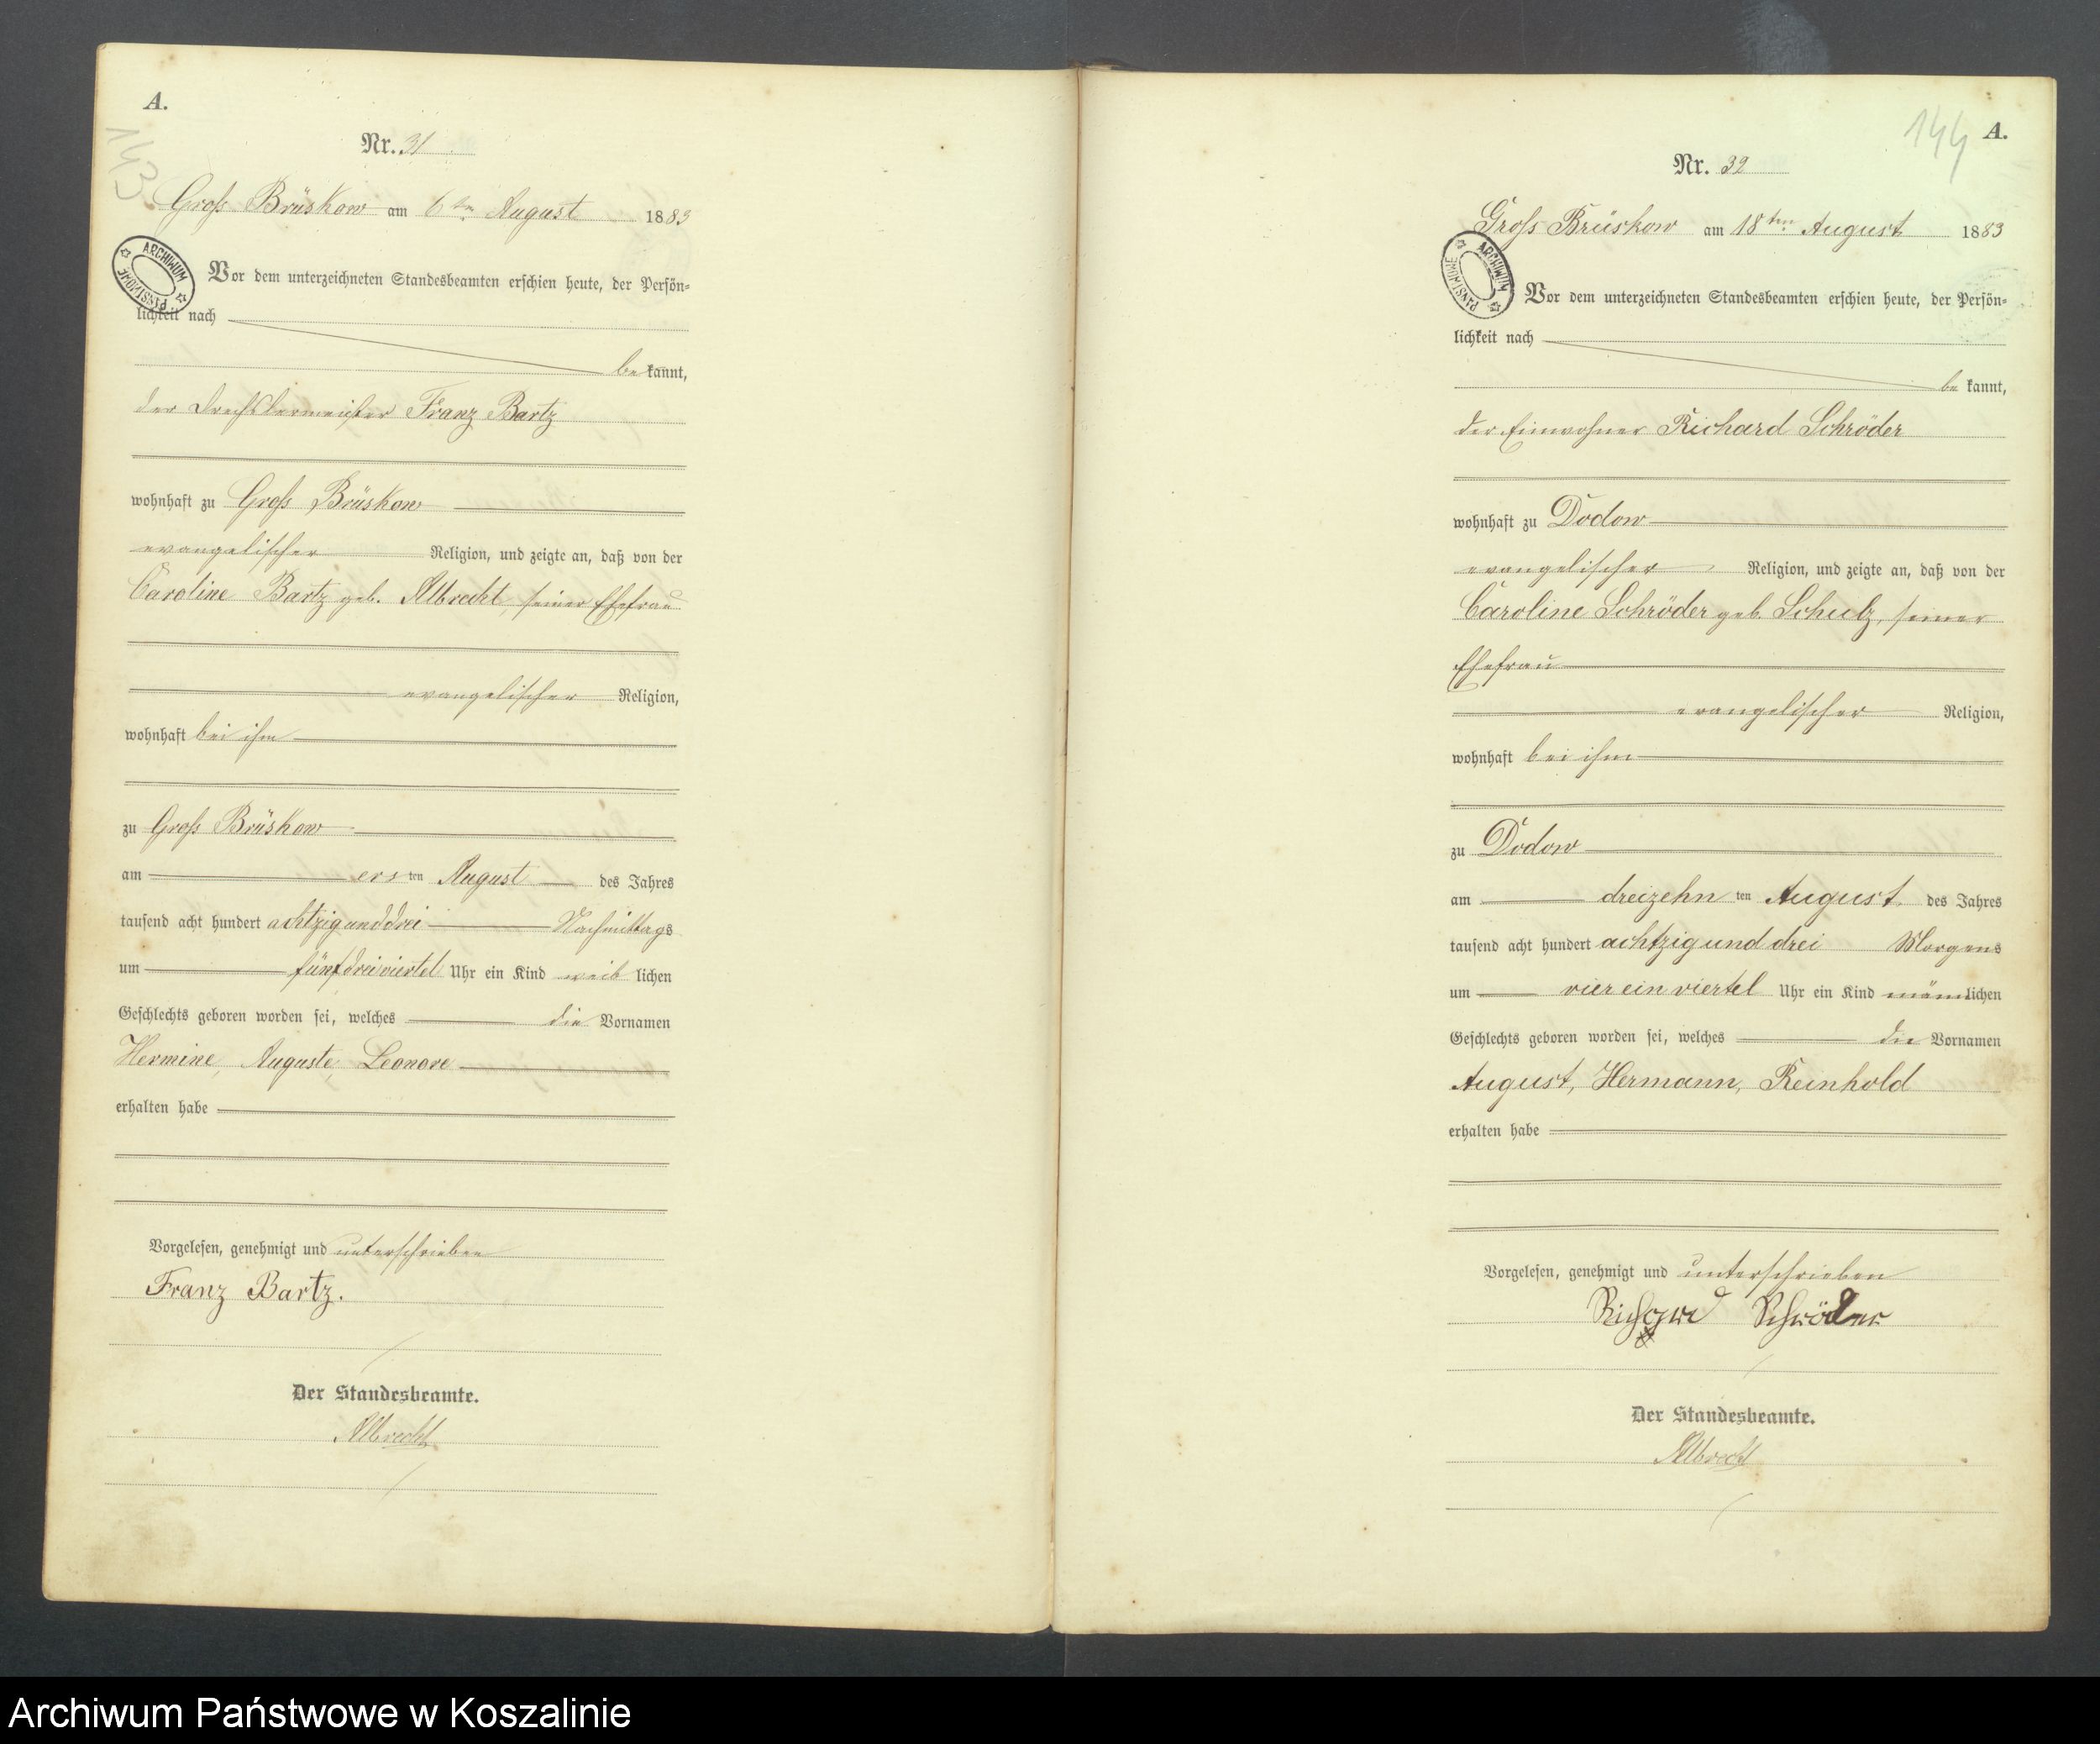 A.
143
Nr. 31
Groß Brüskow am 6ten August 1883
ARCHIWUM PAŃSTWOWE
Vor dem unterzeichneten Standesbeamten erschien heute, der Persön-
lichkeit nach
be kannt,
der Drechslermeister Franz Bartz
wohnhaft zu Groß Brüskow
evangelischer Religion, und zeigte an, daß von der
Caroline Bartz geb. Albrecht, seiner Ehefrau
evangelischer Religion,
wohnhaft bei ihm
zu Groß Brüskow
am ers ten August des Jahres
tausend acht hundert achtzigunddrei Nachmittags
um fünf dreiviertel Uhr ein Kind weib lichen
Geschlechts geboren worden sei, welches die Vornamen
Hermine, Auguste, Leonore
erhalten habe
Vorgelesen, genehmigt und unterschrieben
Franz Bartz.
Der Standesbeamte.
Albrecht
144 A.
Nr. 32
Groß Brüskow am 18ten August 1883
ARCHIWUM PAŃSTWOWE
Vor dem unterzeichneten Standesbeamten erschien heute, der Persön-
lichkeit nach
be kannt,
der Einwohner Richard Schröder
wohnhaft zu Dodow
evangelischer Religion, und zeigte an, daß von der
Caroline Schröder geb. Schulz, seiner
Ehefrau
evangelischer Religion,
wohnhaft bei ihm
zu Dodow
am dreizehn ten August des Jahres
tausend acht hundert achtzigund drei Morgens
um vier ein viertel Uhr ein Kind männlichen
Geschlechts geboren worden sei, welches die Vornamen
August, Hermann, Reinhold
erhalten habe
Vorgelesen, genehmigt und unterschrieben
Richard Schröder
Der Standesbeamte.
Albrecht
Archiwum Państwowe w Koszalinie